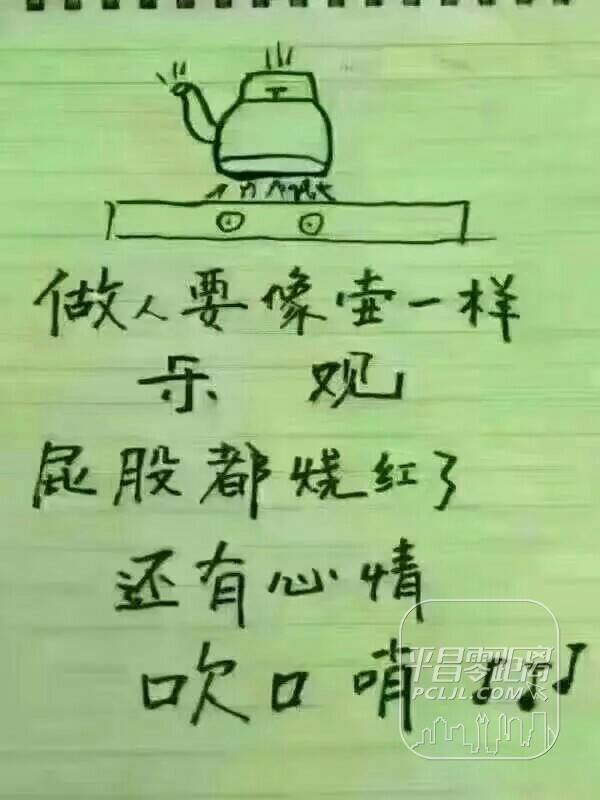 做人要像壶一样
乐 观
屁股都烧红了
还有心情
吹口哨
平昌零距离
PCLJL.COM